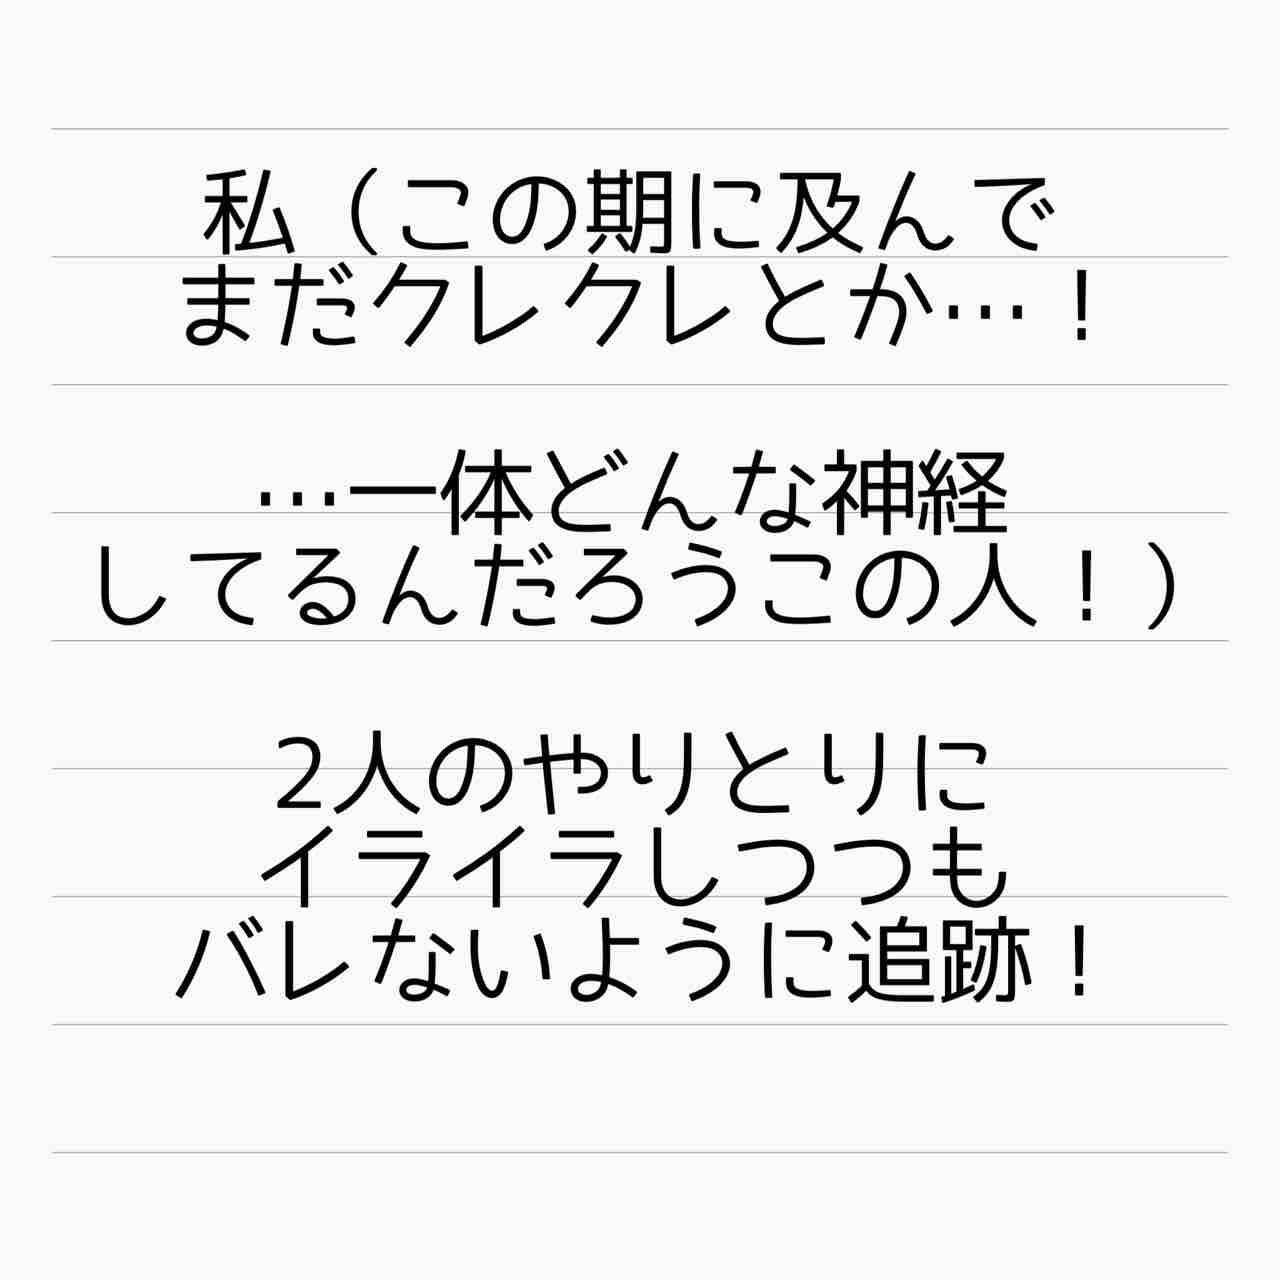 私（この期に及んで
まだクレクレとか…！
…一体どんな神経
してるんだろうこの人！）
2人のやりとりに
イライラしつつも
バレないように追跡！